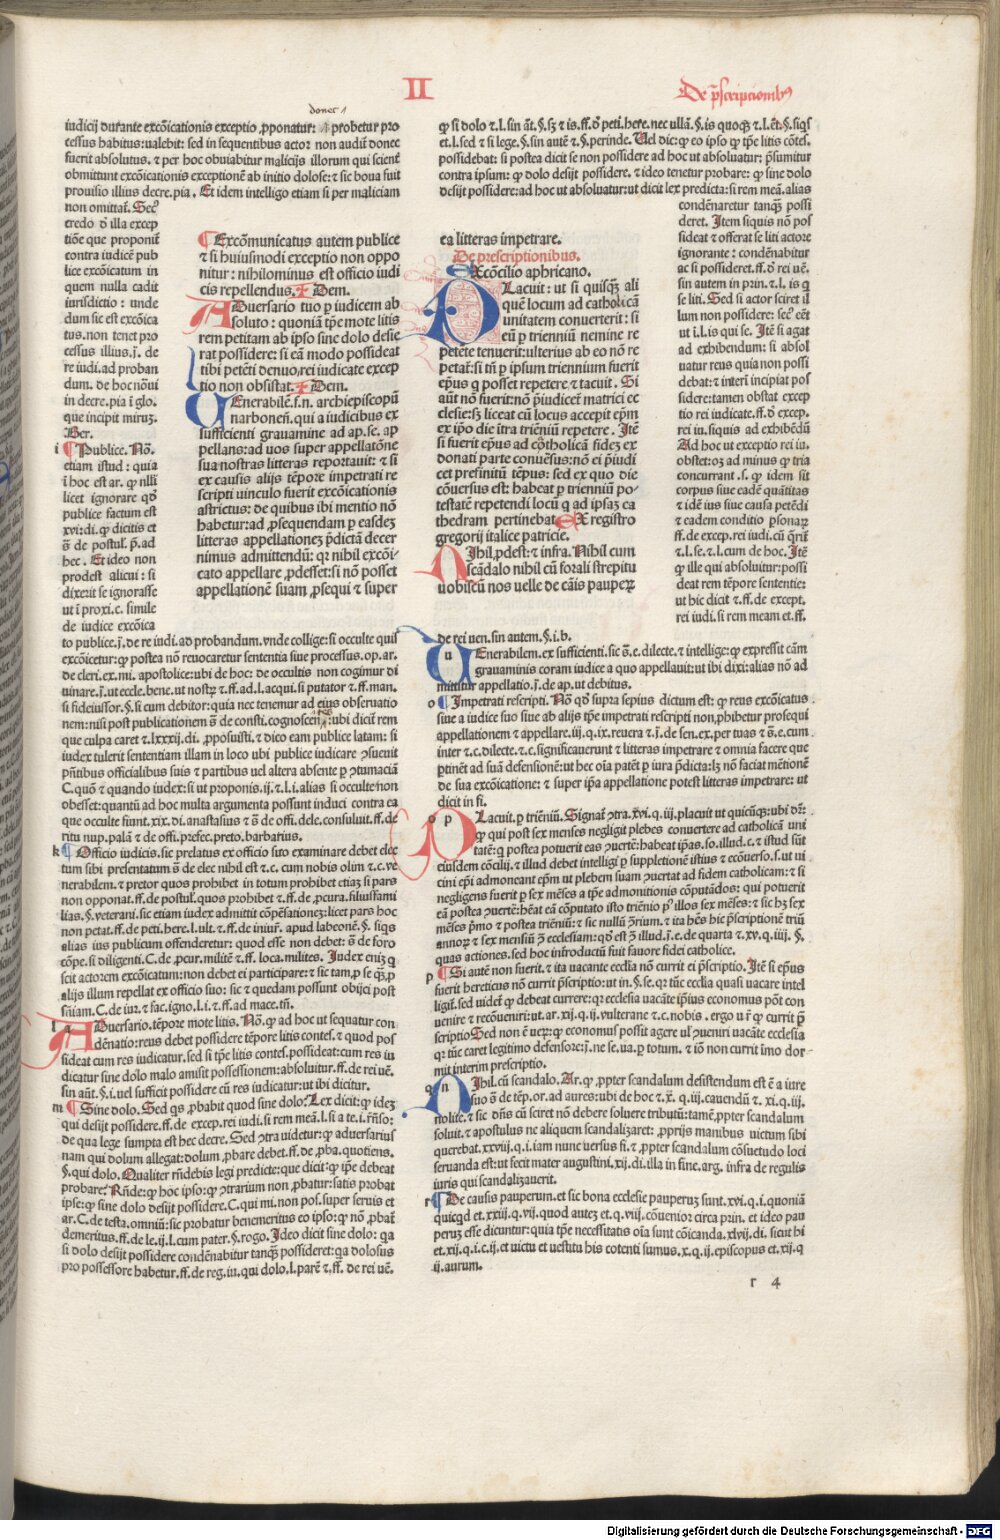 II
De p̄scriptionibꝰ
donec
iudicij durante excōicationis exceptio ꝓponatur: probetur pro
cessus habitus: ualebit: sed in sequentibus actor non audiū donec
fuerit absolutus. ⁊ per hoc obuiabitur malicijs illorum qui scienť
obmittunt excōicationis exceptionē ab initio dolose: ⁊ sic boua fuit
prouisio illius decre. pia. Et idem intelligo etiam si per maliciam
non omittať. Secꝰ
credo ō illa excep
tiōe que proponiť
contra iudicē pub
lice excōicatum in
quem nulla cadit
iurisdictio : unde
dum sic est excōica
tus. non tenet pro
cessus illius. j. de
re iudi. ad proban
dum. de hoc nōui
in decre. pia ī glo.
que incipit miruꝫ.
Ber.
i Publice. Nō.
etiam istud : quia
ī hoc est ar. ꝙ nlli
licet ignorare qđ
publice factum est
xvi: di. ꝙ dicitis et
s̄ de postul. p̄. ad
hec. Et ideo non
prodest alicui: si
dixerit se ignorasse
ut ī proxi. c. simile
de iudice excōica
to publice. j. de re iudi. ad probandum. vnde collige: si occulte quis
excōicetur: ꝙ postea nō reuocaretur sententia siue processus. op. ar.
de cleri. ex. mi. apostolice: ubi de hoc: de occultis non cogimur di
uinare. j. ut eccle. bene. ut nostꝝ ⁊. ff. ad. l. acqui. si putator ⁊. ff. man.
si fideiussor. §. si cum debitor: quia nec tenemur ad eius obseruatio
nem: nisi post publicationem s̄ de consti. cognoscen : ubi dicit̄ rem
que culpa caret ⁊. lxxxij. di. ꝓposuisti. ⁊ dico eam publice latam: si
iudex tulerit sententiam illam in loco ubi publice iudicare ꝯsueuit
pn̄tibus officialibus suis ⁊ partibus uel altera absente ꝑ ꝯtumaciā
C. quō ⁊ quando iudex: si ut proponis. ij. ⁊. l. i. alias si occulte non
obesset: quantū ad hoc multa argumenta possunt induci contra ea
que occulte fiunt. xix. di. anastasius ⁊ s̄ de offi. dele. consuluit. ff. de
ritu nup. palā ⁊ de offi. prefec. preto. barbarius.
k Officio iudicis. sic prelatus ex officio suo examinare debet elec
tum sibi presentatum s̄ de elec nihil est ⁊. c. cum nobis olim ⁊. c. ve
nerabilem. ⁊ pretor quos prohibet in totum prohibet etiaꝫ si pars
non opponat. ff. de postul. quos prohibet ⁊. ff. de ꝓcura. filiusfami
lias. §. veterani. sic etiam iudex admittit cōpēsationeꝫ: licet pars hoc
non petat. ff. de peti. here. l. ult. ⁊. ff. de iniur̄. apud labeonē. §. siqs
alias ius publicum offenderetur: quod esse non debet: s̄ de foro
cōpe. si diligenti. C. de ꝓcur. militē ⁊. ff. loca. milites. Iudex eniꝫ q
scit actorem excōicatum: non debet ei participare: ⁊ sic tam ꝑ se ꝙ̄ꝫ ꝑ
alijs illum repellat ex officio suo: sic ⁊ quedam possunt obijci post
sn̄iam. C. de iur. ⁊ fac. igno. l. i. ⁊. ff. ad mace. tn̄.
l ADuersario. tēpore mote litis. Nō. ꝙ ad hoc ut sequatur con
dēnatio: reus debet possidere tēpore litis contes. ⁊ quod pos
sideat cum res iudicatur. sed si tp̄e litis contes. possideat: cum res iu
dicatur sine dolo malo amisit possessionem: absoluitur. ff. de rei uē.
sin aūt. §. i. uel sufficit possidere cū res iudicatur: ut ibi dicitur.
m Sine dolo. Sed qs ꝓbabit quod sine dolo? Lex dicit: ꝙ ideꝫ
qui desijt possidere. ff. de excep. rei iudi. si rem meā. l. si a te. i. rn̄so:
de qua lege sumpta est hec decre. Sed ꝯtra uidetur: ꝙ aduersarius
nam qui dolum allegat: dolum ꝓbare debet. ff. de ꝓba. quotiens.
§. qui dolo. Qualiter rn̄debis legi predicte: que dicit: ꝙ ip̄e debeat
probare? Rn̄de: ꝙ hoc ipso: ꝙ ꝯtrarium non ꝓbatur: satis probat
ipse: ꝙ sine dolo desijt possidere. C. qui mi. non pos. super seruis et
ar. C. de testa. omniū: sic probatur benemeritus eo ipso: ꝙ nō ꝓbat̄
demeritus. ff. de le. ij. l. cum pater. §. rogo. Ideo dicit sine dolo: qa
si dolo desijt possidere condēnabitur tanqꝫ possideret: qa dolosus
pro possessore habetur. ff. de reg. iu. qui dolo. l. parē ⁊. ff. de rei uē.
Excōmunicatus autem publice
⁊ si huiusmodi exceptio non oppo
nitur: nihilominus est officio iudi
cis repellendus. Idem.
ADuersario tuo ꝑ iudicem ab
soluto: quoniā tp̄e mote litis
rem petitam ab ipso sine dolo desie
rat possidere: si eā modo possideat
tibi petēti denuo, rei iudicate excep
tio non obsistat. Idem.
UEnerabilē. f. n. archiepiscopū
narbonen̄. qui a iudicibus ex
sufficienti grauamine ad ap. se. ap
pellans: ad uos super appellatōne
sua nostras litteras reportauit: ⁊ si
ex causis alijs tēpore impetrati re
scripti uinculo fuerit excōicationis
astrictus: de quibus ibi mentio nō
habetur: ad ꝓsequendam ꝑ easdeꝫ
litteras appellationeꝫ p̄dictā decer
nimus admittendū: qr nihil excōi
cato appellare ꝓdesset: si nō posset
appellationē suam ꝓsequi ⁊ super
ea litteras impetrare.
De prescriptionibus.
Ex cōcilio aphricano.
PLacuit: ut si quisqꝫ ali
quē locum ad catholicā
unitatem conuerterit: si
eū ꝑ trienniū nemine re
petēte tenuerit: ulterius ab eo nō re
petať: si tn̄ ꝑ ipsum triennium fuerit
ep̄us q̣ posset repetere ⁊ tacuit. Si
aūt nō fuerit: nō p̄iudicet matrici ec
clesie: sꝫ liceat cū locus accepit ep̄m
ex ip̄o die ītra trienniū repetere. Itē
si fuerit ep̄us ad catholicā fideꝫ ex
donati parte conuēsus: nō ei p̄iudi
cet prefinitū tēpus: sed ex quo die
cōuersus est: habeat ꝑ trienniū po-
testatē repetendi locū q̣ ad ipsaꝫ ca
thedram pertinebat. Ex registro
gregorij italice patricie.
NIhil ꝓdest: ⁊ infra. Nihil cum
scādalo nihil cū forali strepitu
uobiscū nos uelle de cāis pauperꝝ
ꝙ si dolo ⁊. l. sin āt. §. sꝫ ⁊ is. ff. ō peti. here. nec ullā. §. is quoqꝫ ⁊. l. et̄. §. siqs
et. l. sed ⁊ si lege. §. sin autē ⁊. §. perinde. Uel dic: ꝙ eo ipso ꝙ tp̄e litis cōtes.
possidebat: si postea dicit se non possidere ad hoc ut absoluatur: p̄sumitur
contra ipsum: ꝙ dolo desijt possidere. ⁊ ideo tenetur probare: ꝙ sine dolo
desijt possidere: ad hoc ut absoluatur: ut dicit lex predicta: si rem meā. alias
condēnaretur tanqꝫ possi
deret. Item siquis nō pos
sideat ⁊ offerat se liti actore
ignorante: condēnabitur
ac si possideret. ff. ō rei uē.
sin autem in prin. ⁊. l. is q
se liti. Sed si actor sciret il
lum non possidere: secꝰ eēt
ut i. l. is qui se. Itē si agat
ad exhibendum: si absol
uatur reus quia non possi
debat: ⁊ interī incipiat pos
sidere: tamen obstat excep
tio rei iudicate. ff. ō excep.
rei iu. siquis ad exhibendū
Ad hoc ut exceptio rei iu.
obstet: oꝫ ad minus ꝙ tria
concurrant. s. ꝙ idem sit
corpus siue eadē quātitas
⁊ idē ius siue causa petēdi
⁊ eadem conditio ꝑsonaꝝ
ff. de excep. rei iudi. cū q̄rit̄
⁊. l. se. ⁊. l. cum de hoc. Itē
ꝙ ille qui absoluitur: possi
deat rem tēpore sententie:
ut hic dicit ⁊. ff. de except.
rei iudi. si rem meam et. ff.
de rei uen. sin autem. §. i. b.
n UEnerabilem. ex sufficienti. sic s̄. e. dilecte. ⁊ intellige: ꝙ expressit cām
grauaminis coram iudice a quo appellauit: ut ibi dixi: alias nō ad
mittitur appellatio. j. de ap. ut debitus.
o Impetrati rescripti. Nō qđ supra sepius dictum est: ꝙ reus excōicatus
siue a iudice suo siue ab alijs tp̄e impetrati rescripti non ꝓhibetur prosequi
appellationem ⁊ appellare. iij. q. ix. reuera ⁊. j. de sen. ex. per tuas ⁊ s̄. e. cum
inter ⁊. c. dilecte. ⁊. c. significauerunt ⁊ litteras impetrare ⁊ omnia facere que
ꝑtinēt ad suā defensionē: ut hec oīa patēt ꝑ iura p̄dicta: lꝫ nō faciat mētionē
de sua excōicatione: ⁊ super ip̄a appellatione potest litteras impetrare: ut
dicit in fi.
o p PLacuit. ꝑ trieniū. Signať ꝯtra. xvi. q. iij. placuit ut quicūqꝫ: ubi dr̄:
ꝙ qui post sex menses negligit plebes conuertere ad catholicā uni
tatē: q̣ postea potuerit eas ꝯuertē: habeat ip̄as. so. illud. c. ⁊ istud sūt
eiusdem cōcilij. ⁊ illud debet intelligi ꝑ suppletionē istius ⁊ ecōuerso. s. ut ui
cini ep̄i admoneant ep̄m ut plebem suam ꝯuertat ad fidem catholicam: ⁊ si
negligens fuerit ꝑ sex mēses a tp̄e admonitionis cōputādos: qui potuerit
eā postea ꝯuertē: hēat eā cōputato isto triēnio pꝰ illos sex mēses: ⁊ sic hꝫ sex
mēses pͥmo ⁊ postea trieniū: ⁊ sic nullū ꝯriū. ⁊ ita hēs hic p̄scriptionē triū
annoꝝ ⁊ sex mensiū ꝯ ecclesiam: qđ est ꝯ illud. j. e. de quarta ⁊. xv. q. iij. §.
quas actiones. sed hoc introductū fuit fauore fidei catholice.
p Si autē non fuerit. ⁊ ita vacante ecclīa nō currit ei p̄scriptio. Itē si ep̄us
fuerit hereticus nō currit p̄scriptio: ut in. §. se. qr tūc ecclīa quasi uacare intel
ligit̄. sed uideť ꝙ debeat currere: qr ecclesia uacāte ip̄ius economus pōt con
uenire ⁊ recōueniri: ut ar. xij. q. ij. vulterane ⁊. c. nobis. ergo uř ꝙ currit p̄
scriptio Sed non ē ueꝝ: ꝙ economus possit agere ul ꝯueniri vacāte ecclesia
qr tūc caret legitimo defensore: j. ne se. ua. ꝑ totum. ⁊ iō non currit īmo dor
mit interim prescriptio.
q n NIhil. cū scandalo. Ar. ꝙ ꝓpter scandalum desistendum est ē a iure
suo s̄ de tēp. or. ad aures: ubi de hoc ⁊. x̄. q. iij. cauendū ⁊. xi. q. iij.
nolite. ⁊ sic dn̄s cū sciret nō debere soluere tributū: tamē ꝓpter scandalum
soluit. ⁊ apostulus ne aliquem scandalizaret: ꝓprijs manibus uictum sibi
querebat. xxviij. q. i. iam nunc uersus fi. ⁊ ꝓpter scandalum cōsuetudo loci
seruanda est: ut fecit mater augustini. xij. di. illa in fine. arg. infra de regulis
iuris qui scandalizauerit.
r De causis pauperum. et sic bona ecclesie pauperuꝫ sunt. xvi. q. i. quoniā
quicqd et. xxiij. q. vij. quod autez et. q. viij. cōuenior circa prin. et ideo pau
peruꝫ esse dicuntur: quia tp̄e necessitatis oīa sunt cōicanda. xlvij. di. sicut hi
et. xij. q. i. c. ij. et uictu et uestitu his cotenti sumus. x. q. ij. episcopus et. xij. q
ij. aurum.
r 4
Digitalisierung gefördert durch die Deutsche Forschungsgemeinschaft - DFG